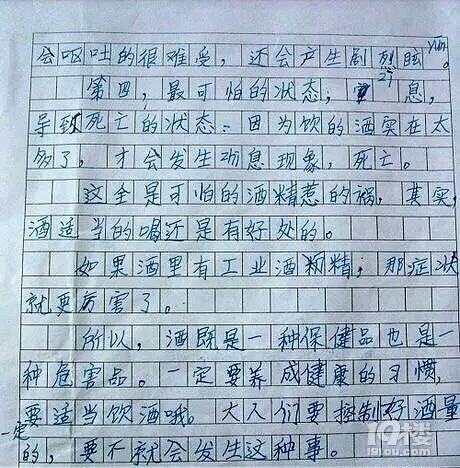 会呕吐的很难受，还会产生剧烈眩yūn。
第四，最可怕的状态，息，
导致死亡的状态：因为饮的酒实在太
多了，才会发生动息现象，死亡。
这全是可怕的酒精惹的祸，其实，
酒适当的喝还是有好处的。
如果酒里有工业酒精；那症状
就更厉害了。
所以，酒既是一种保健品也是一
种危害品。一定要养成健康的习惯，
要适当饮酒哦。大人们要控制好酒量
一定的，要不就会发生这种事。
19楼
19lou.com